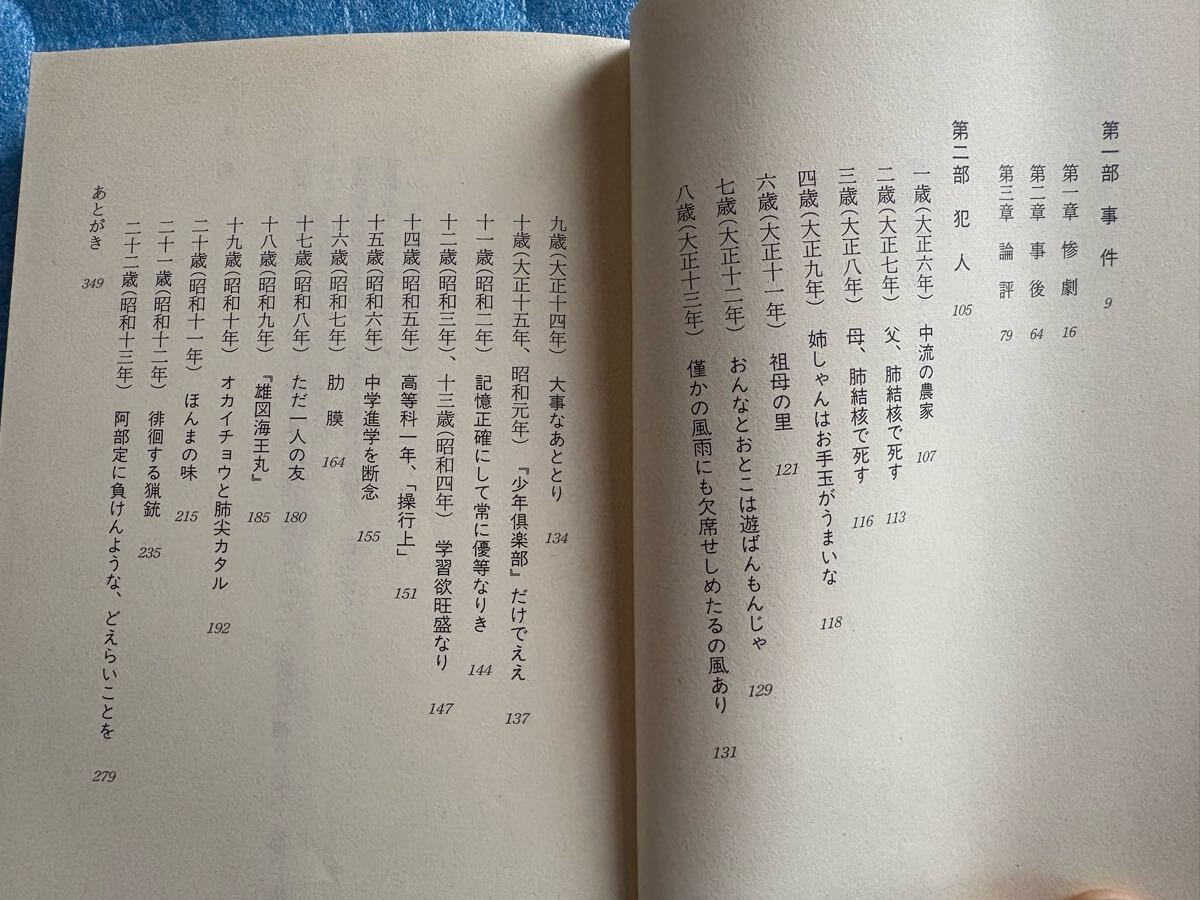 第一部 事件 9
第一章 惨劇 16
第二章 事後 64
第三章 論評 79
第二部 犯人 105
一歳(大正六年) 中流の農家 107
二歳(大正七年) 父、肺結核で死す 113
三歳(大正八年) 母、肺結核で死す 116
四歳(大正九年) 姉しゃんはお手玉がうまいな 118
六歳(大正十一年) 祖母の里 121
七歳(大正十二年) おんなとおとこは遊ばんもんじゃ 129
八歳(大正十三年) 僅かの風雨にも欠席せしめたるの風あり 131
九歳(大正十四年) 大事なあととり 134
十歳(大正十五年、昭和元年) 『少年倶楽部』だけでええ 137
十一歳(昭和二年) 記憶正確にして常に優等なりき 144
十二歳(昭和三年)、十三歳(昭和四年) 学習欲旺盛なり 147
十四歳(昭和五年) 高等科一年、「操行上」 151
十五歳(昭和六年) 中学進学を断念 155
十六歳(昭和七年) 肋膜 164
十七歳(昭和八年) ただ一人の友 180
十八歳(昭和九年) 『雄図海王丸』 185
十九歳(昭和十年) オカイチョウと肺尖カタル 192
二十歳(昭和十一年) ほんまの味 215
二十一歳(昭和十二年) 徘徊する猟銃 235
二十二歳(昭和十三年) 阿部定に負けんような、どえらいことを 279
あとがき 349